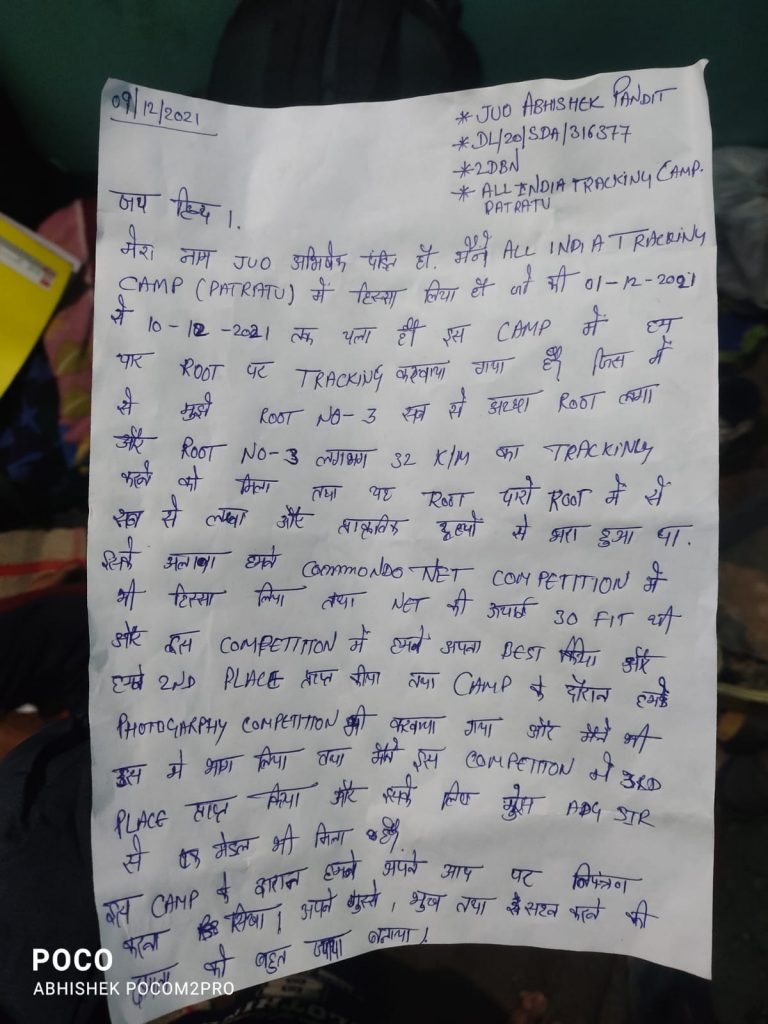 09/12/2021
* JUO ABHISHEK PANDIT
* DL/20/SDA/316377
* 2DBN
* ALL INDIA TRACKING CAMP.
PATRATU
जय हिन्द ।
मेरा नाम JUO अभिषेक पंडित हौ. मैंने ALL INDIA TRACKING
CAMP (PATRATU) में हिस्सा लिया हौ जो की 01-12-2021
से 10-12-2021 तक चला हौ इस CAMP में हम
चार ROOT पर TRACKING करवाया गया है जिस में
से मुझे ROOT NO-3 सब से अच्छा ROOT लगा
और ROOT NO-3 लगभग 32 K/M का TRACKING
करने को मिला तथा यह ROOT चारो ROOT में से
सब से लम्बा और प्राकृतिक दृश्यो से भरा हुआ था.
इसके अलावा हमने COMMONDO NET COMPETITION में
भी हिस्सा लिया तथा NET की ऊचाई 30 FIT थी
और इस COMPETITION में हमने अपना BEST किया और
हमने 2ND PLACE प्राप्त कीया तथा CAMP के दौरान हमके
PHOTOGARPHY COMPETITION भी करवाया गया और मैंने भी
इस मे भाग लिया तथा मैंने इस COMPETITION मे 3RD
PLACE प्राप्त किया और इसके लिए मुझे ADG SIR
से एक मेडल भी मिला है.
इस CAMP के दौरान हमने अपने आप पर नियंत्रण
करना सिखा । अपने गुस्से, भुख तथा सहन करने की
क्षमता को बहुत ज्यादा बनाया।
POCO
ABHISHEK POCOM2PRO